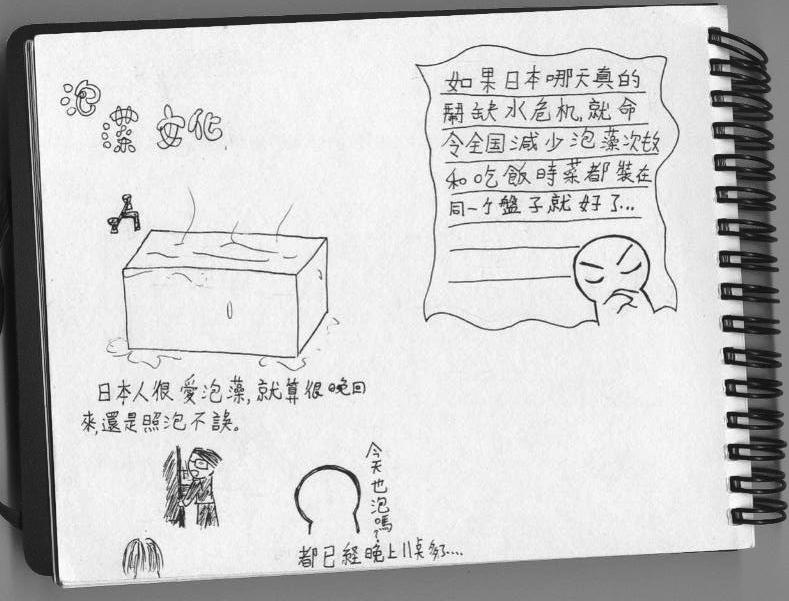 泡藻文化
如果日本哪天真的
鬧缺水危机,就命
令全国減少泡藻次数
和吃飯時菜都裝在
同一个盤子就好了...
日本人很愛泡藻,就算很晚回
來,還是照泡不誤。
今天也泡嗎?
都已經晚上11点多了....